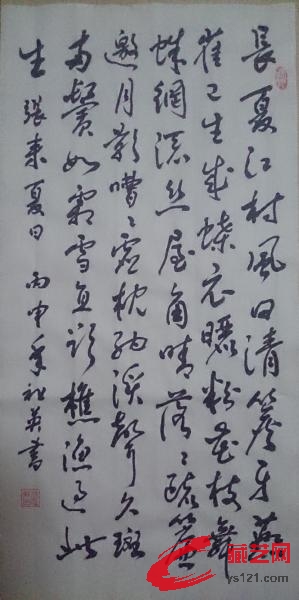 長夏江村風日清簷牙燕
雀已生成蝶衣曬粉花枝舞
蛛網添丝屋角晴落落疏簾
邀月影嘈嘈虚枕纳溪聲久斑
两鬓如霜雪直欲樵渔过此
生 張耒夏日 丙申年 书
藏艺网
ys121.com